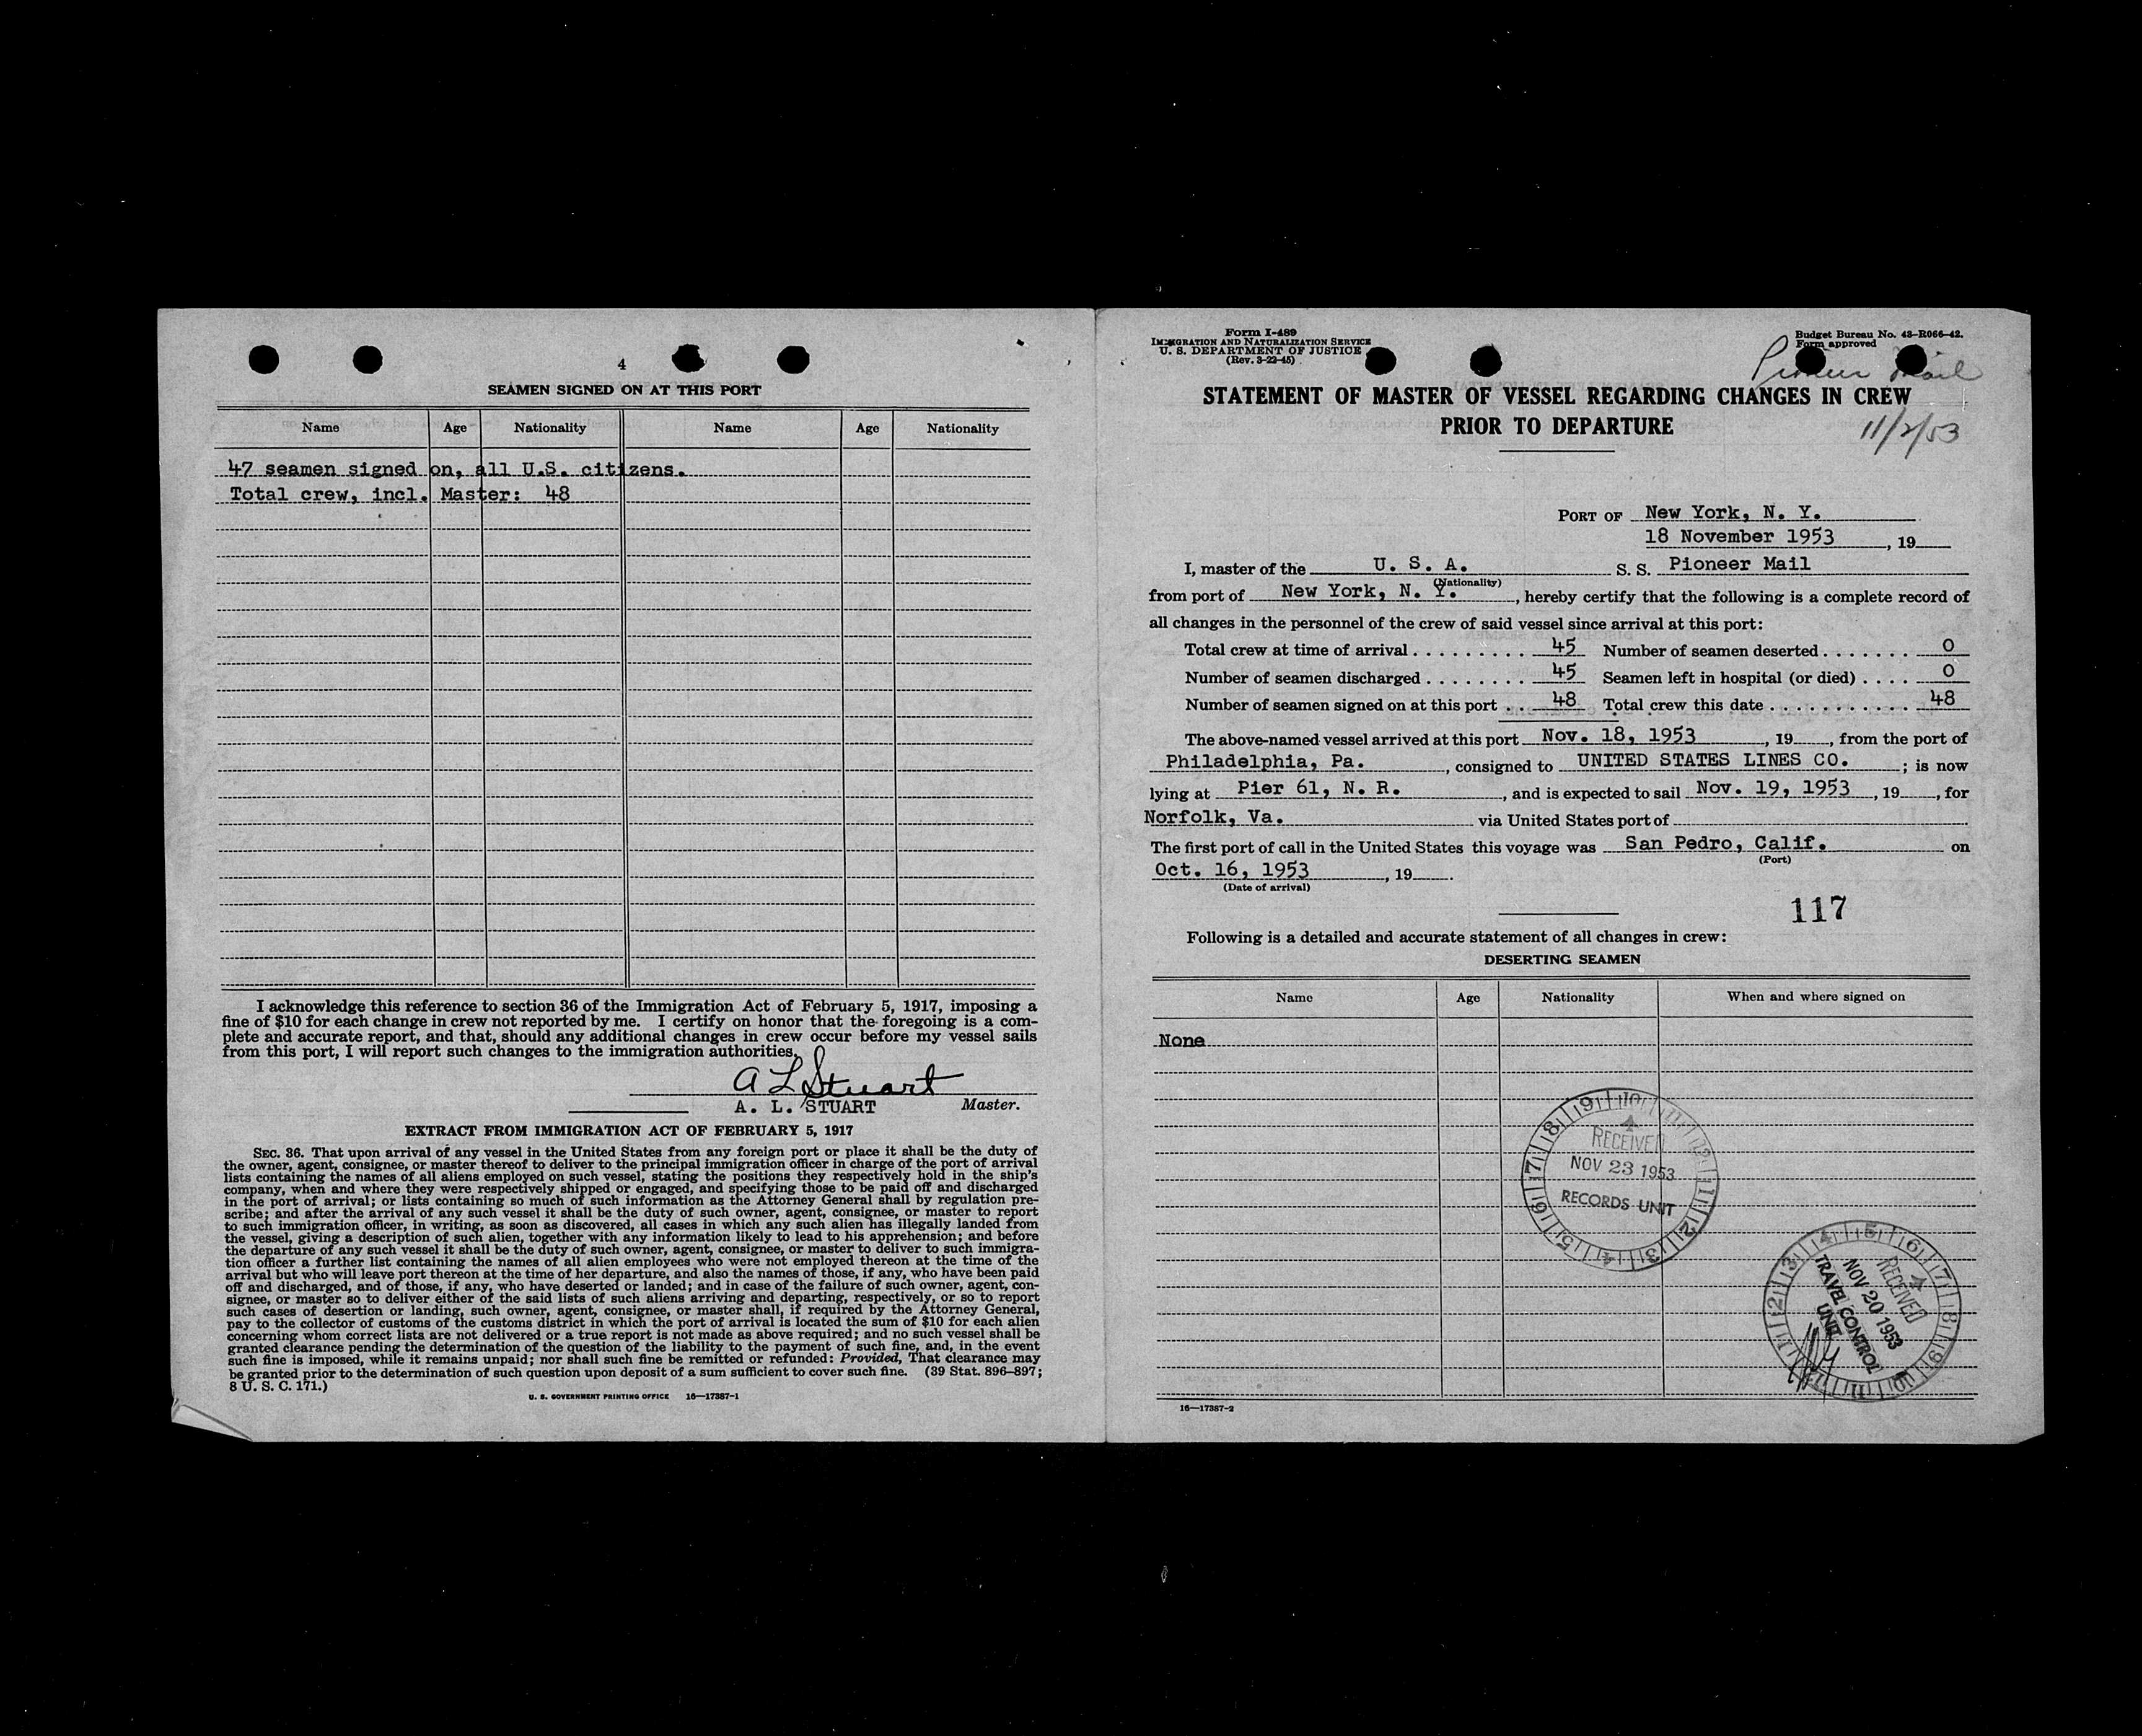 4
SEAMEN SIGNED ON AT THIS PORT
Name Age Nationality Name Age Nationality
47 seamen signed on, all U.S. citizens.
Total crew, incl. Master: 48
I acknowledge this reference to section 36 of the Immigration Act of February 5, 1917, imposing a
fine of $10 for each change in crew not reported by me. I certify on honor that the foregoing is a com-
plete and accurate report, and that, should any additional changes in crew occur before my vessel sails
from this port, I will report such changes to the immigration authorities.
A L Stuart
A. L. STUART Master.
EXTRACT FROM IMMIGRATION ACT OF FEBRUARY 5, 1917
SEC. 36. That upon arrival of any vessel in the United States from any foreign port or place it shall be the duty of
the owner, agent, consignee, or master thereof to deliver to the principal immigration officer in charge of the port of arrival
lists containing the names of all aliens employed on such vessel, stating the positions they respectively hold in the ship's
company, when and where they were respectively shipped or engaged, and specifying those to be paid off and discharged
in the port of arrival; or lists containing so much of such information as the Attorney General shall by regulation pre-
scribe; and after the arrival of any such vessel it shall be the duty of such owner, agent, consignee, or master to report
to such immigration officer, in writing, as soon as discovered, all cases in which any such alien has illegally landed from
the vessel, giving a description of such alien, together with any information likely to lead to his apprehension; and before
the departure of any such vessel it shall be the duty of such owner, agent, consignee, or master to deliver to such immigra-
tion officer a further list containing the names of all alien employees who were not employed thereon at the time of the
arrival but who will leave port thereon at the time of her departure, and also the names of those, if any, who have been paid
off and discharged, and of those, if any, who have deserted or landed; and in case of the failure of such owner, agent, con-
signee, or master so to deliver either of the said lists of such aliens arriving and departing, respectively, or so to report
such cases of desertion or landing, such owner, agent, consignee, or master shall, if required by the Attorney General,
pay to the collector of customs of the customs district in which the port of arrival is located the sum of $10 for each alien
concerning whom correct lists are not delivered or a true report is not made as above required; and no such vessel shall be
granted clearance pending the determination of the question of the liability to the payment of such fine, and, in the event
such fine is imposed, while it remains unpaid; nor shall such fine be remitted or refunded: Provided, That clearance may
be granted prior to the determination of such question upon deposit of a sum sufficient to cover such fine. (39 Stat. 896–897;
8 U. S. C. 171.)
U. S. GOVERNMENT PRINTING OFFICE 16—17387-1
Form I-489
IMMIGRATION AND NATURALIZATION SERVICE
U. S. DEPARTMENT OF JUSTICE
(Rev. 3-22-45)
Budget Bureau No. 43-R066-42.
Form approved
Pioneer Mail
STATEMENT OF MASTER OF VESSEL REGARDING CHANGES IN CREW
PRIOR TO DEPARTURE
11/2/53
PORT OF New York, N. Y.
18 November 1953, 19
I, master of the U. S. A. S. S. Pioneer Mail
(Nationality)
from port of New York, N. Y., hereby certify that the following is a complete record of
all changes in the personnel of the crew of said vessel since arrival at this port:
Total crew at time of arrival . . . . . . . . . 45 Number of seamen deserted . . . . . . . 0
Number of seamen discharged . . . . . . . . 45 Seamen left in hospital (or died) . . . . 0
Number of seamen signed on at this port . . 48 Total crew this date . . . . . . . . . . . 48
The above-named vessel arrived at this port Nov. 18, 1953, 19, from the port of
Philadelphia, Pa., consigned to UNITED STATES LINES CO.; is now
lying at Pier 61, N. R., and is expected to sail Nov. 19, 1953, 19, for
Norfolk, Va. via United States port of
The first port of call in the United States this voyage was San Pedro, Calif. on
(Port)
Oct. 16, 1953, 19.
(Date of arrival)
117
Following is a detailed and accurate statement of all changes in crew:
DESERTING SEAMEN
Name Age Nationality When and where signed on
None
RECEIVED
NOV 23 1953
RECORDS UNIT
RECEIVED
NOV 20 1953
TRAVEL CONTROL
UNIT
16—17387-2